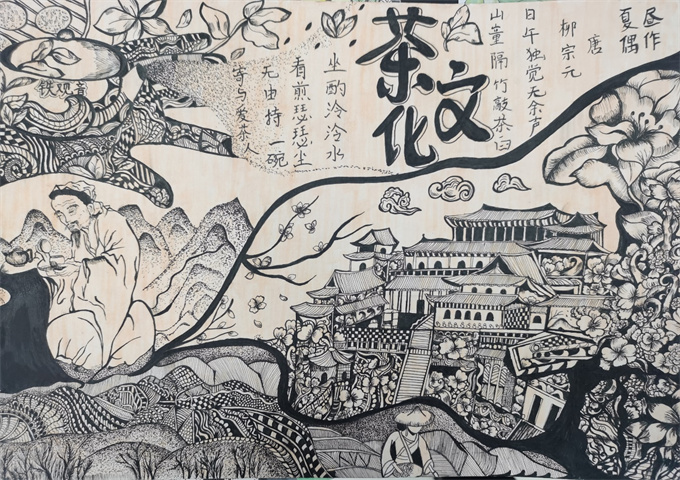 昼作
夏偶
唐
柳宗元
日午独觉无余声
山童隔竹敲茶臼
茶文化
坐酌泠泠水
看煎瑟瑟尘
无由持一碗
寄与爱茶人
铁观音